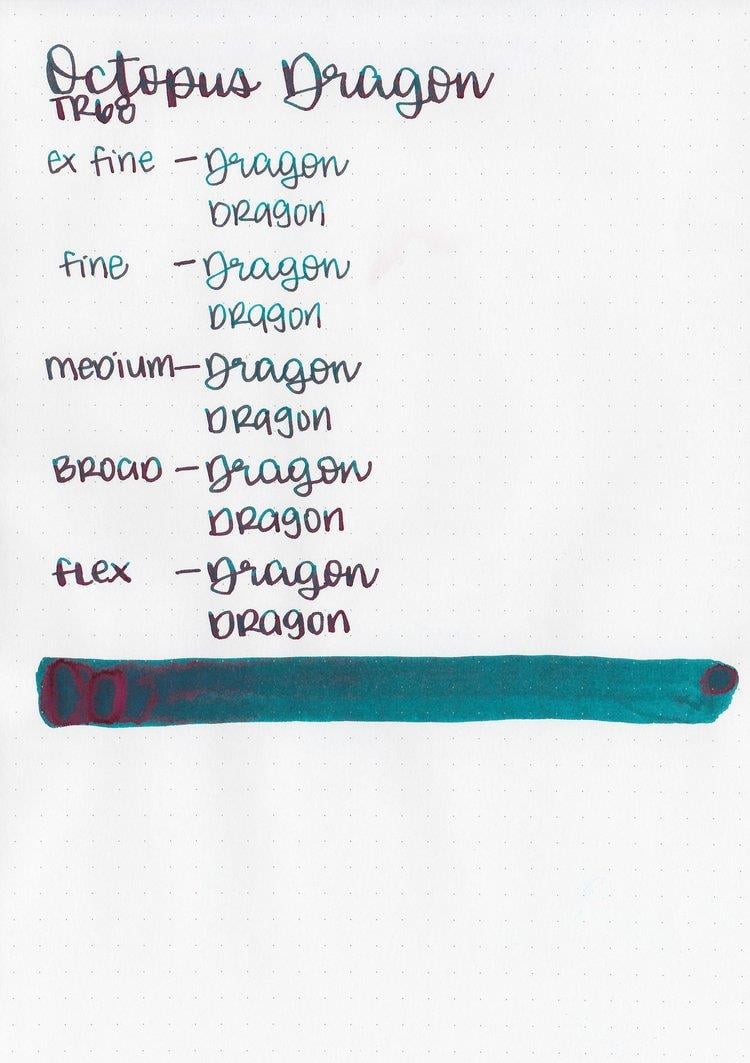 Octopus Dragon
TR68
ex fine - Dragon
DRagon
fine - Dragon
DRagon
medium - Dragon
DRagon
BROAD - Dragon
DRagon
flex - Dragon
DRagon